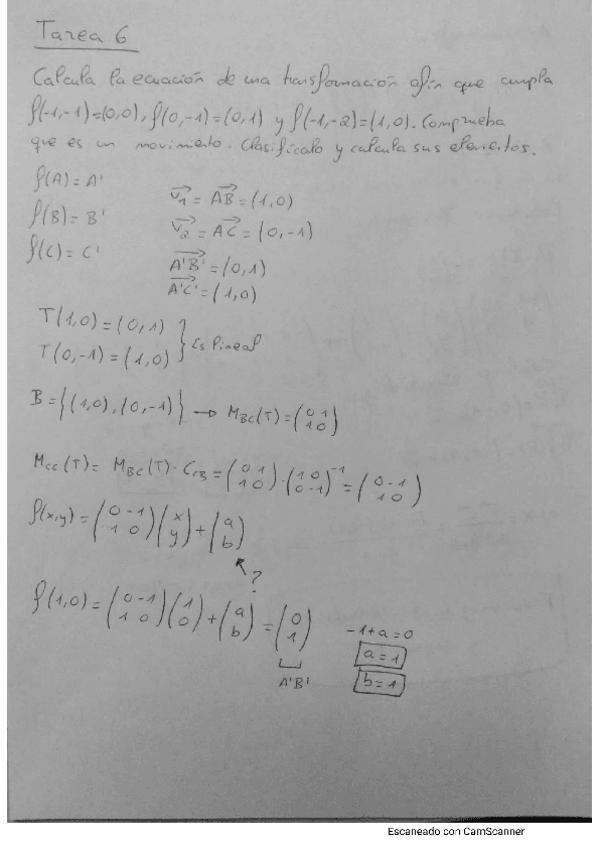 Tarea 6
Calcula la ecuación de una transformación afín que cumpla
f(-1,-1)=(0,0), f(0,-1)=(0,1) y f(-1,-2)=(1,0). Comprueba
que es un movimiento. Clasifícalo y calcula sus elementos.
f(A)=A'
f(B)=B'
f(C)=C'
v₁ = AB = (1,0)
v₂ = AC = (0,-1)
A'B' = (0,1)
A'C' = (1,0)
T(1,0)=(0,1)
T(0,-1)=(1,0)
} Es lineal
B = {(1,0),(0,-1)} → M_BC(T) = (0 1 / 1 0)
M_CC(T) = M_BC(T) · C_CB = (0 1 / 1 0) · (1 0 / 0 -1)⁻¹ = (0 -1 / 1 0)
f(x,y) = (0 -1 / 1 0) (x / y) + (a / b)
?
f(1,0) = (0 -1 / 1 0) (1 / 0) + (a / b) = (0 / 1)
A'B'
-1+a=0
a=1
b=1
Escaneado con CamScanner